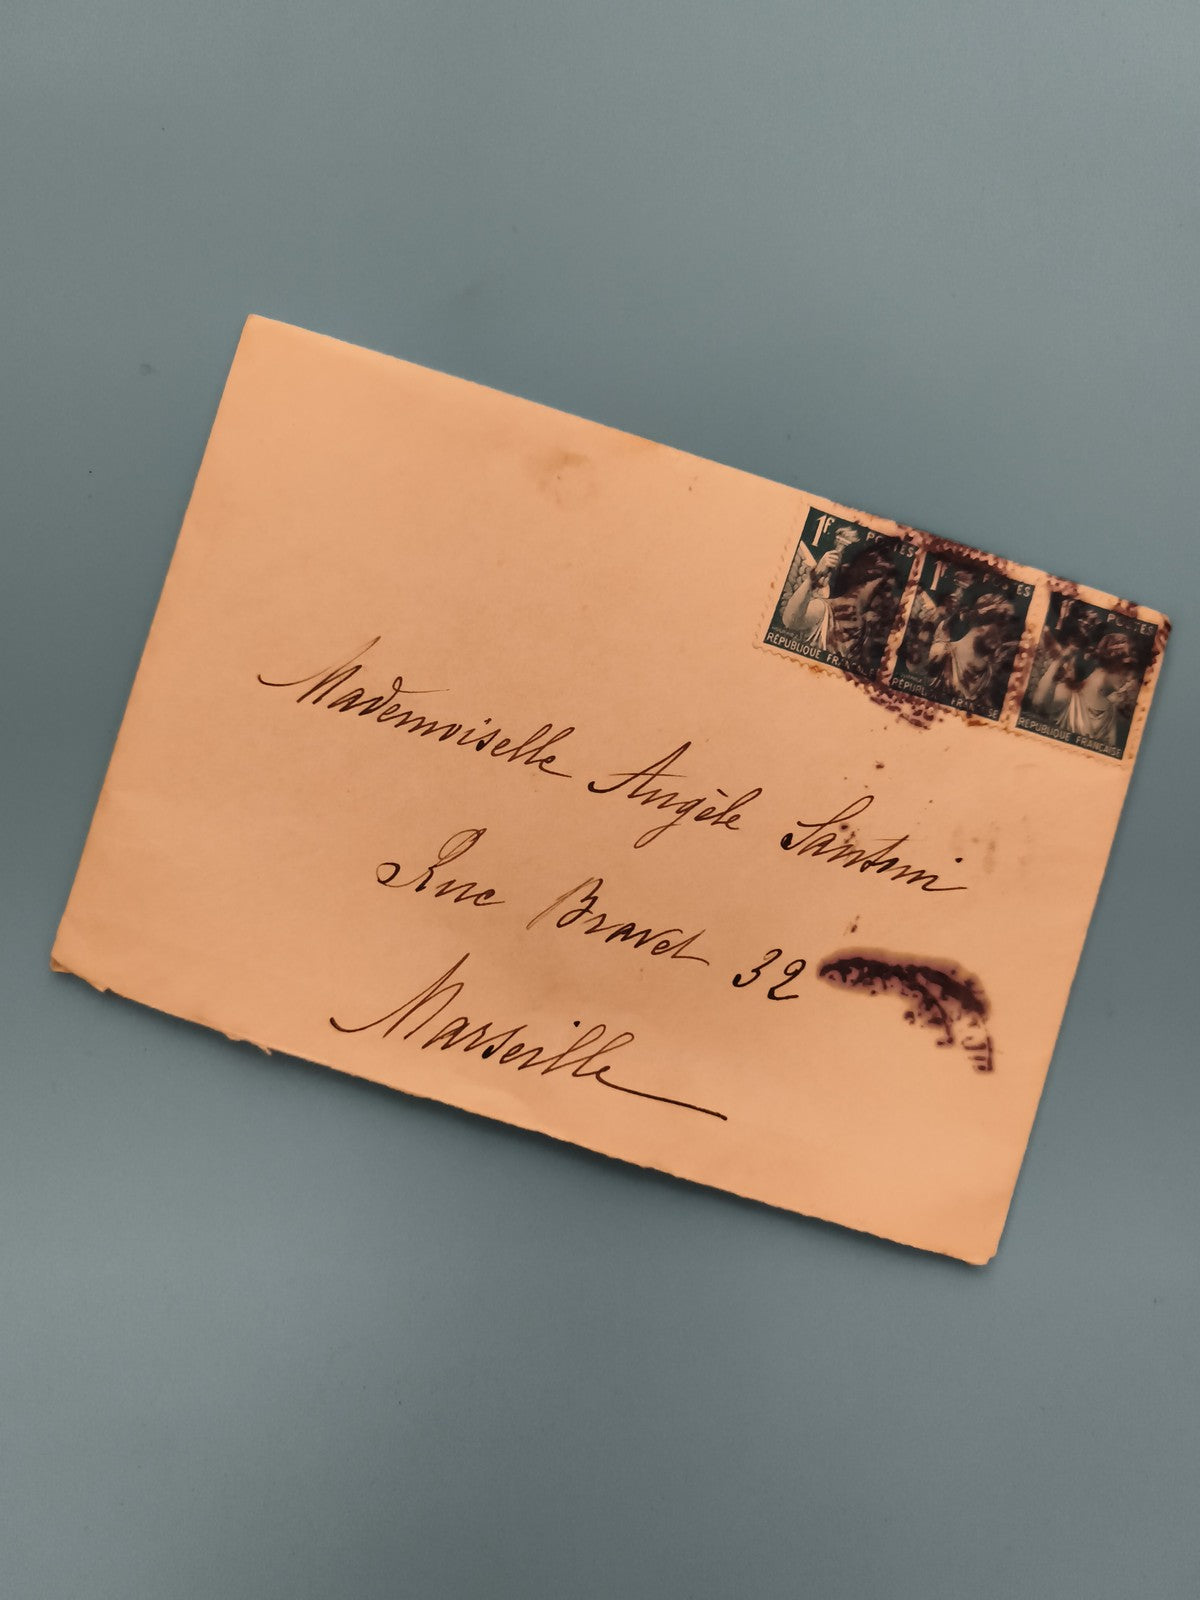 1F POSTES
RÉPUBLIQUE FRANÇAISE
1F POSTES
RÉPUBLIQUE FRANÇAISE
POSTES
RÉPUBLIQUE FRANÇAISE
Mademoiselle Angèle Santoni
Rue Bravet 32
Marseille